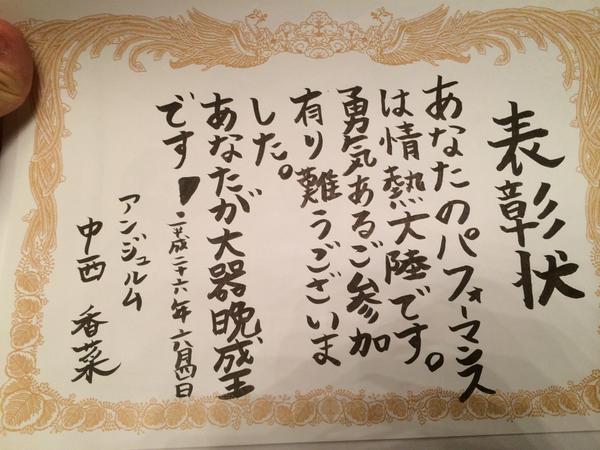 表彰状
あなたのパフォーマンス
は情熱大陸です。
勇気あるご参加
有り難うございま
した。
あなたが大器晩成王
です!
平成二十六年
アンジュルム
中西 香菜